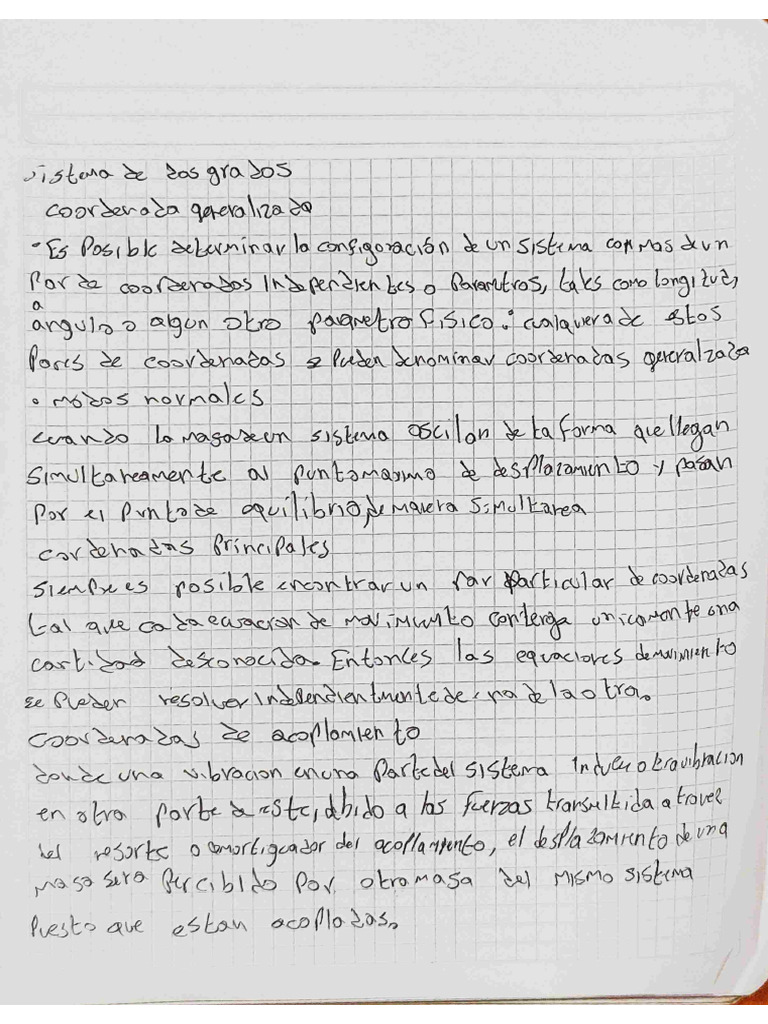 sistema de dos grados
coordenada generalizada
- Es Posible determinar la configoración de un sistema con mas de un
Par de coordenadas Independientes o Parametros, tales como longitud,
a
angulo o algun otro parametro Fisico. cualquera de estos
Pares de coordenadas se Pueden denominar coordenadas generalizada
• modos normales
cuando la masa de un sistema oscilan de ta forma que llegan
simultareamente al punto maximo de desplazamiento y pasan
por el punto de equilibrio, de manera simultarea
cordenadas Principales
siempre es posible encontrar un par particular de coordenadas
tal que cada ecuacion de movimiento contenga unicamente una
cantidad desconocida. Entonces las equaciones de movimiento
se Pueden resolver Independientmente de una de la otra.
coordenadas de acoplamiento
donde una vibracion en una Parte del sistema Induce otra vibracion
en otra parte de este, debido a las fuerzas transmitida a travel
del resorte o amortiguador del acoplamiento, el desplazamiento de una
masa sera Percibido Por otra masa del mismo sistema
Puesto que estan acopladas.